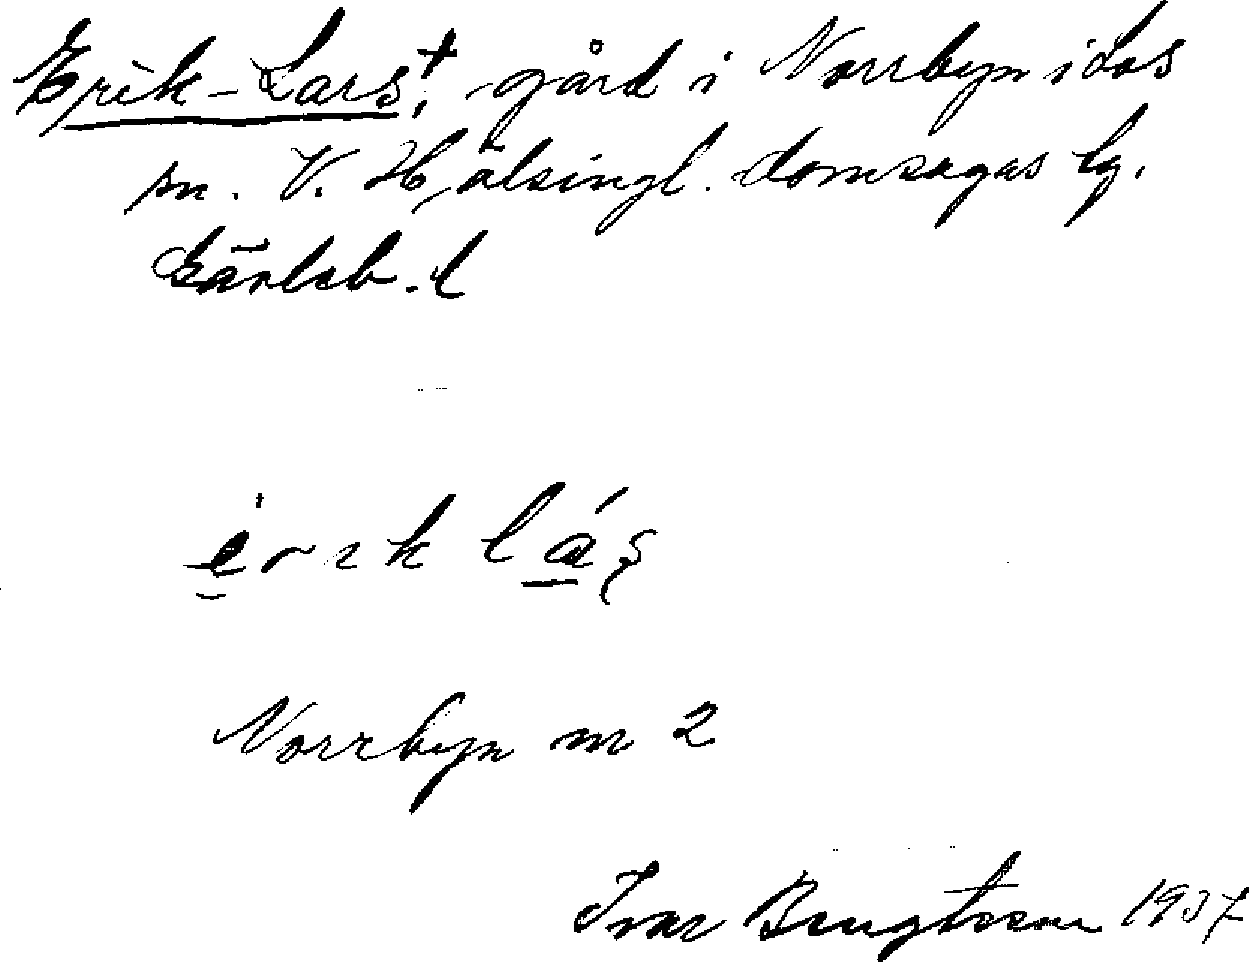 Erik-Lars†, gård i Norrbyn i Los
sn. V. Hälsingl. domsagas tg.
Gävleb. l
érik lás
Norrbyn nr 2
Ivar Bengtsson 1937